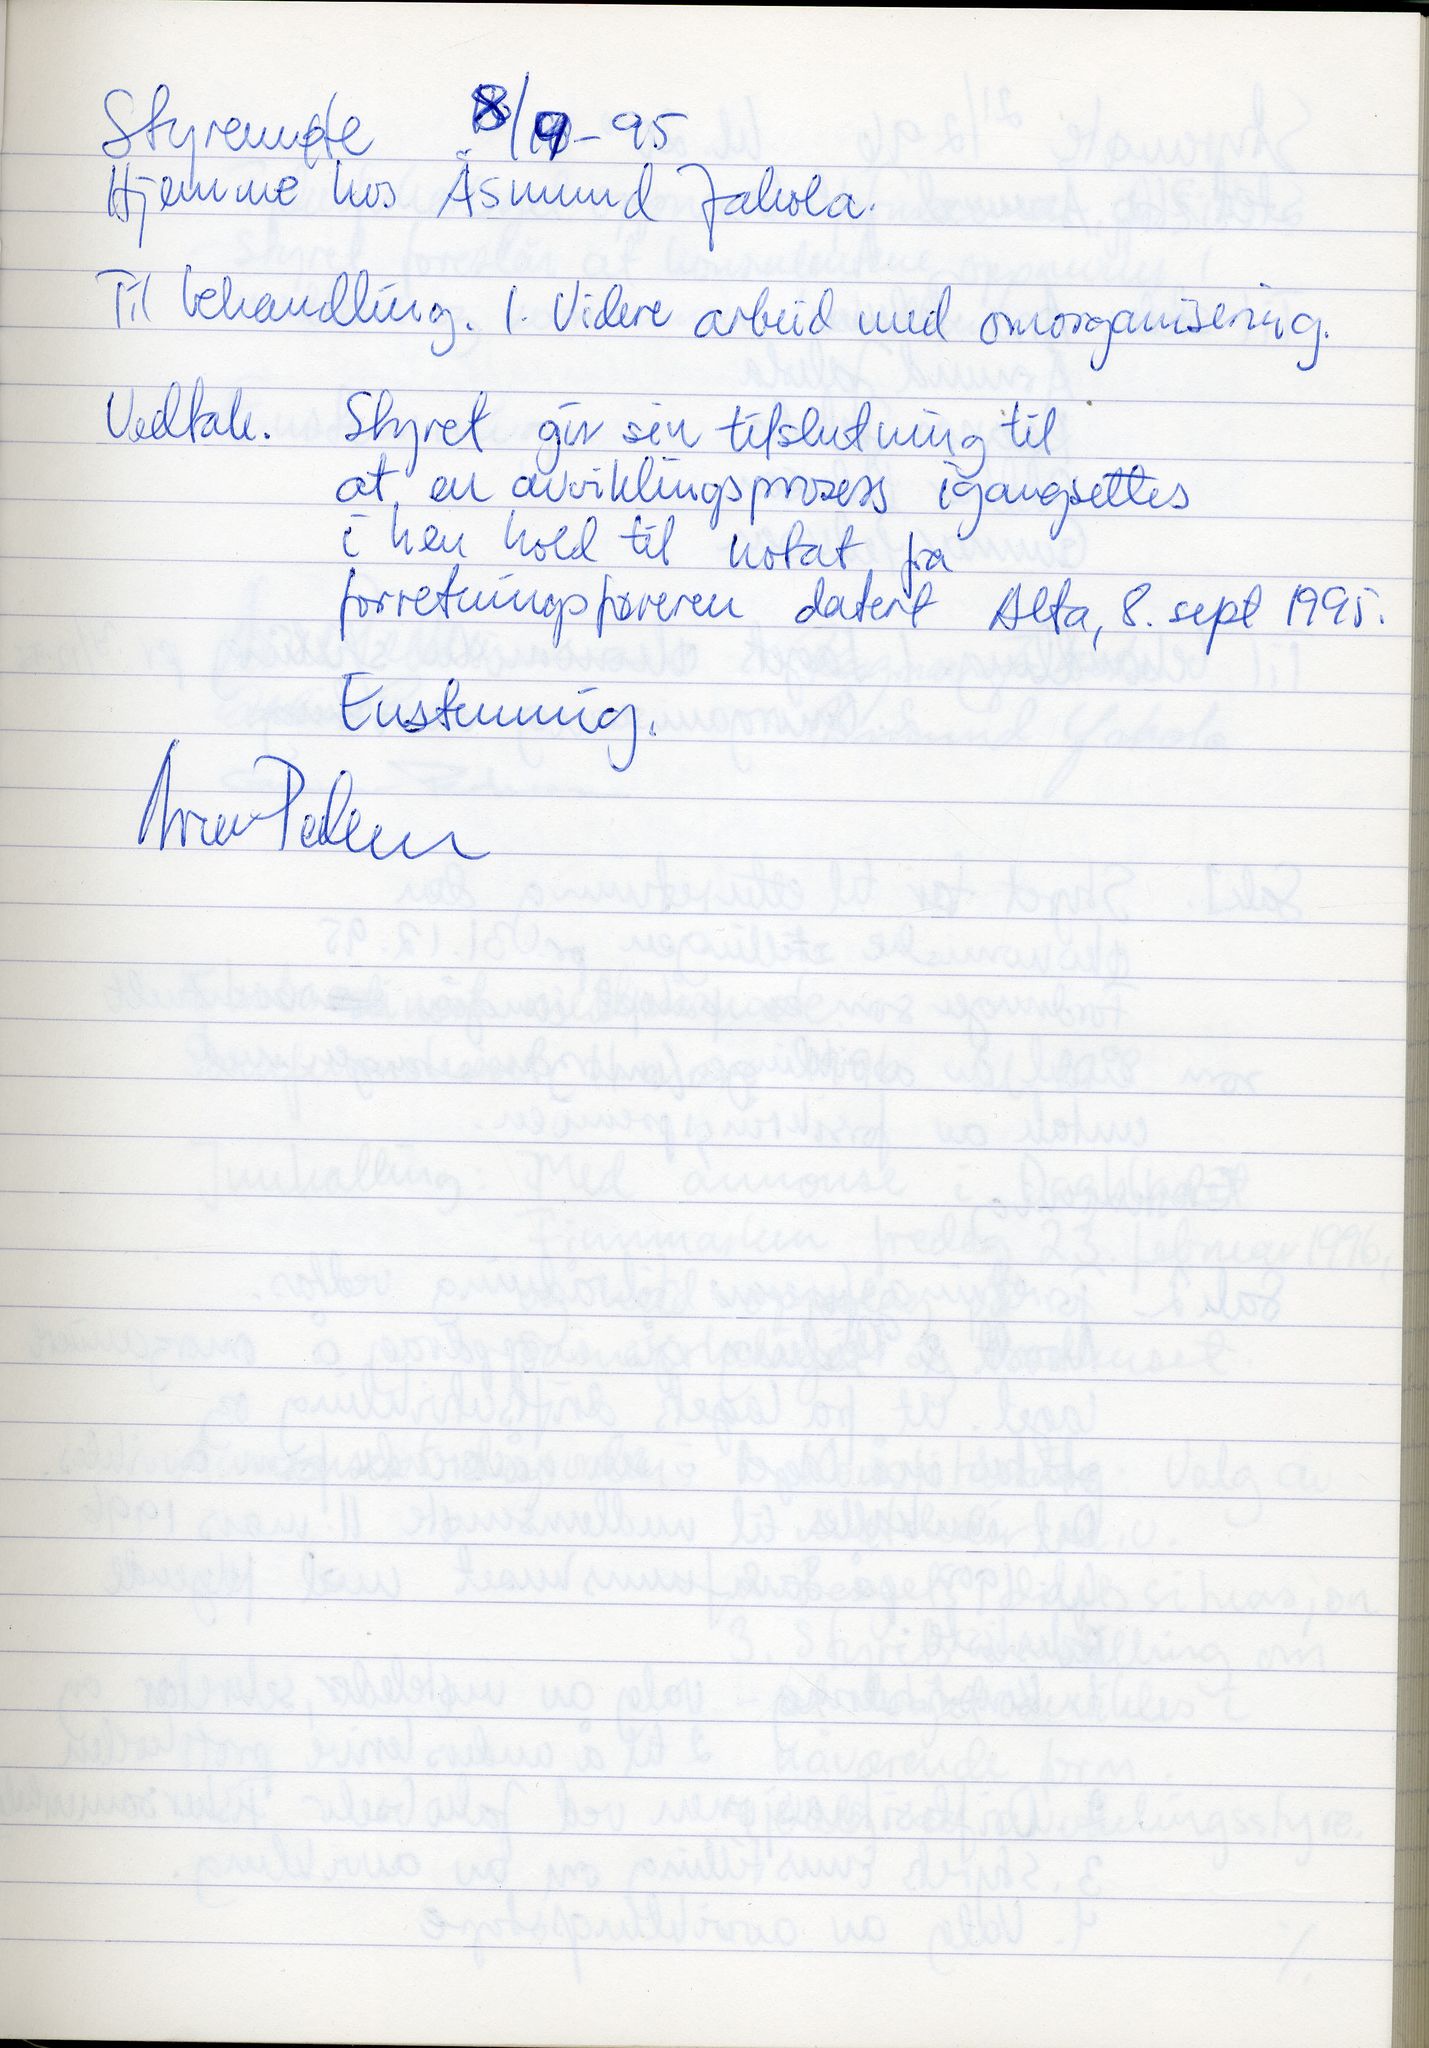 Styremøte 8/9-95
Hjemme hos Åsmund Jakola.
Til behandling. 1. Videre arbeid med omorganisering.
Vedtak. Styret gir sin tilslutning til
at en avviklingsprosess igangsettes
i hen hold til notat fra
forretningsføreren datert Alta, 8. sept 1995.
Enstemmig.